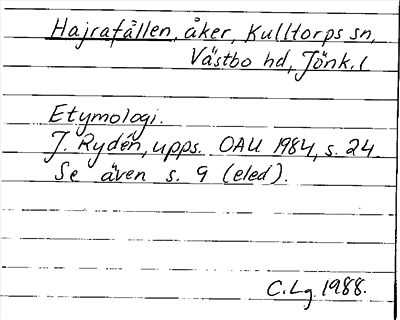 Hajrafållen, åker, Kulltorps sn,
Västbo hd, Jönk. l
Etymologi.
J. Rydén, upps. OAU 1984, s. 24.
Se även s. 9 (eled).
C. Lg 1988.